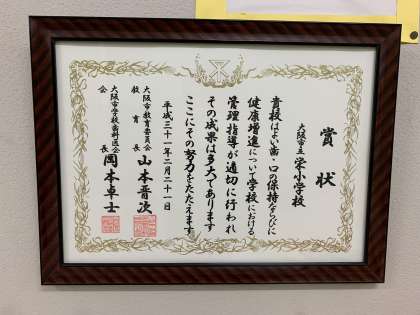 賞状
大阪市立
栄小学校
貴校はよい歯・口の保持ならびに
健康増進について学校における
管理指導が適切に行われ
その成果は多大であります
ここにその努力をたたえます
平成三十一年二月二十一日
大阪市教育委員会
教育長
山本晋次
大阪市学校歯科医会
会長
岡本卓士